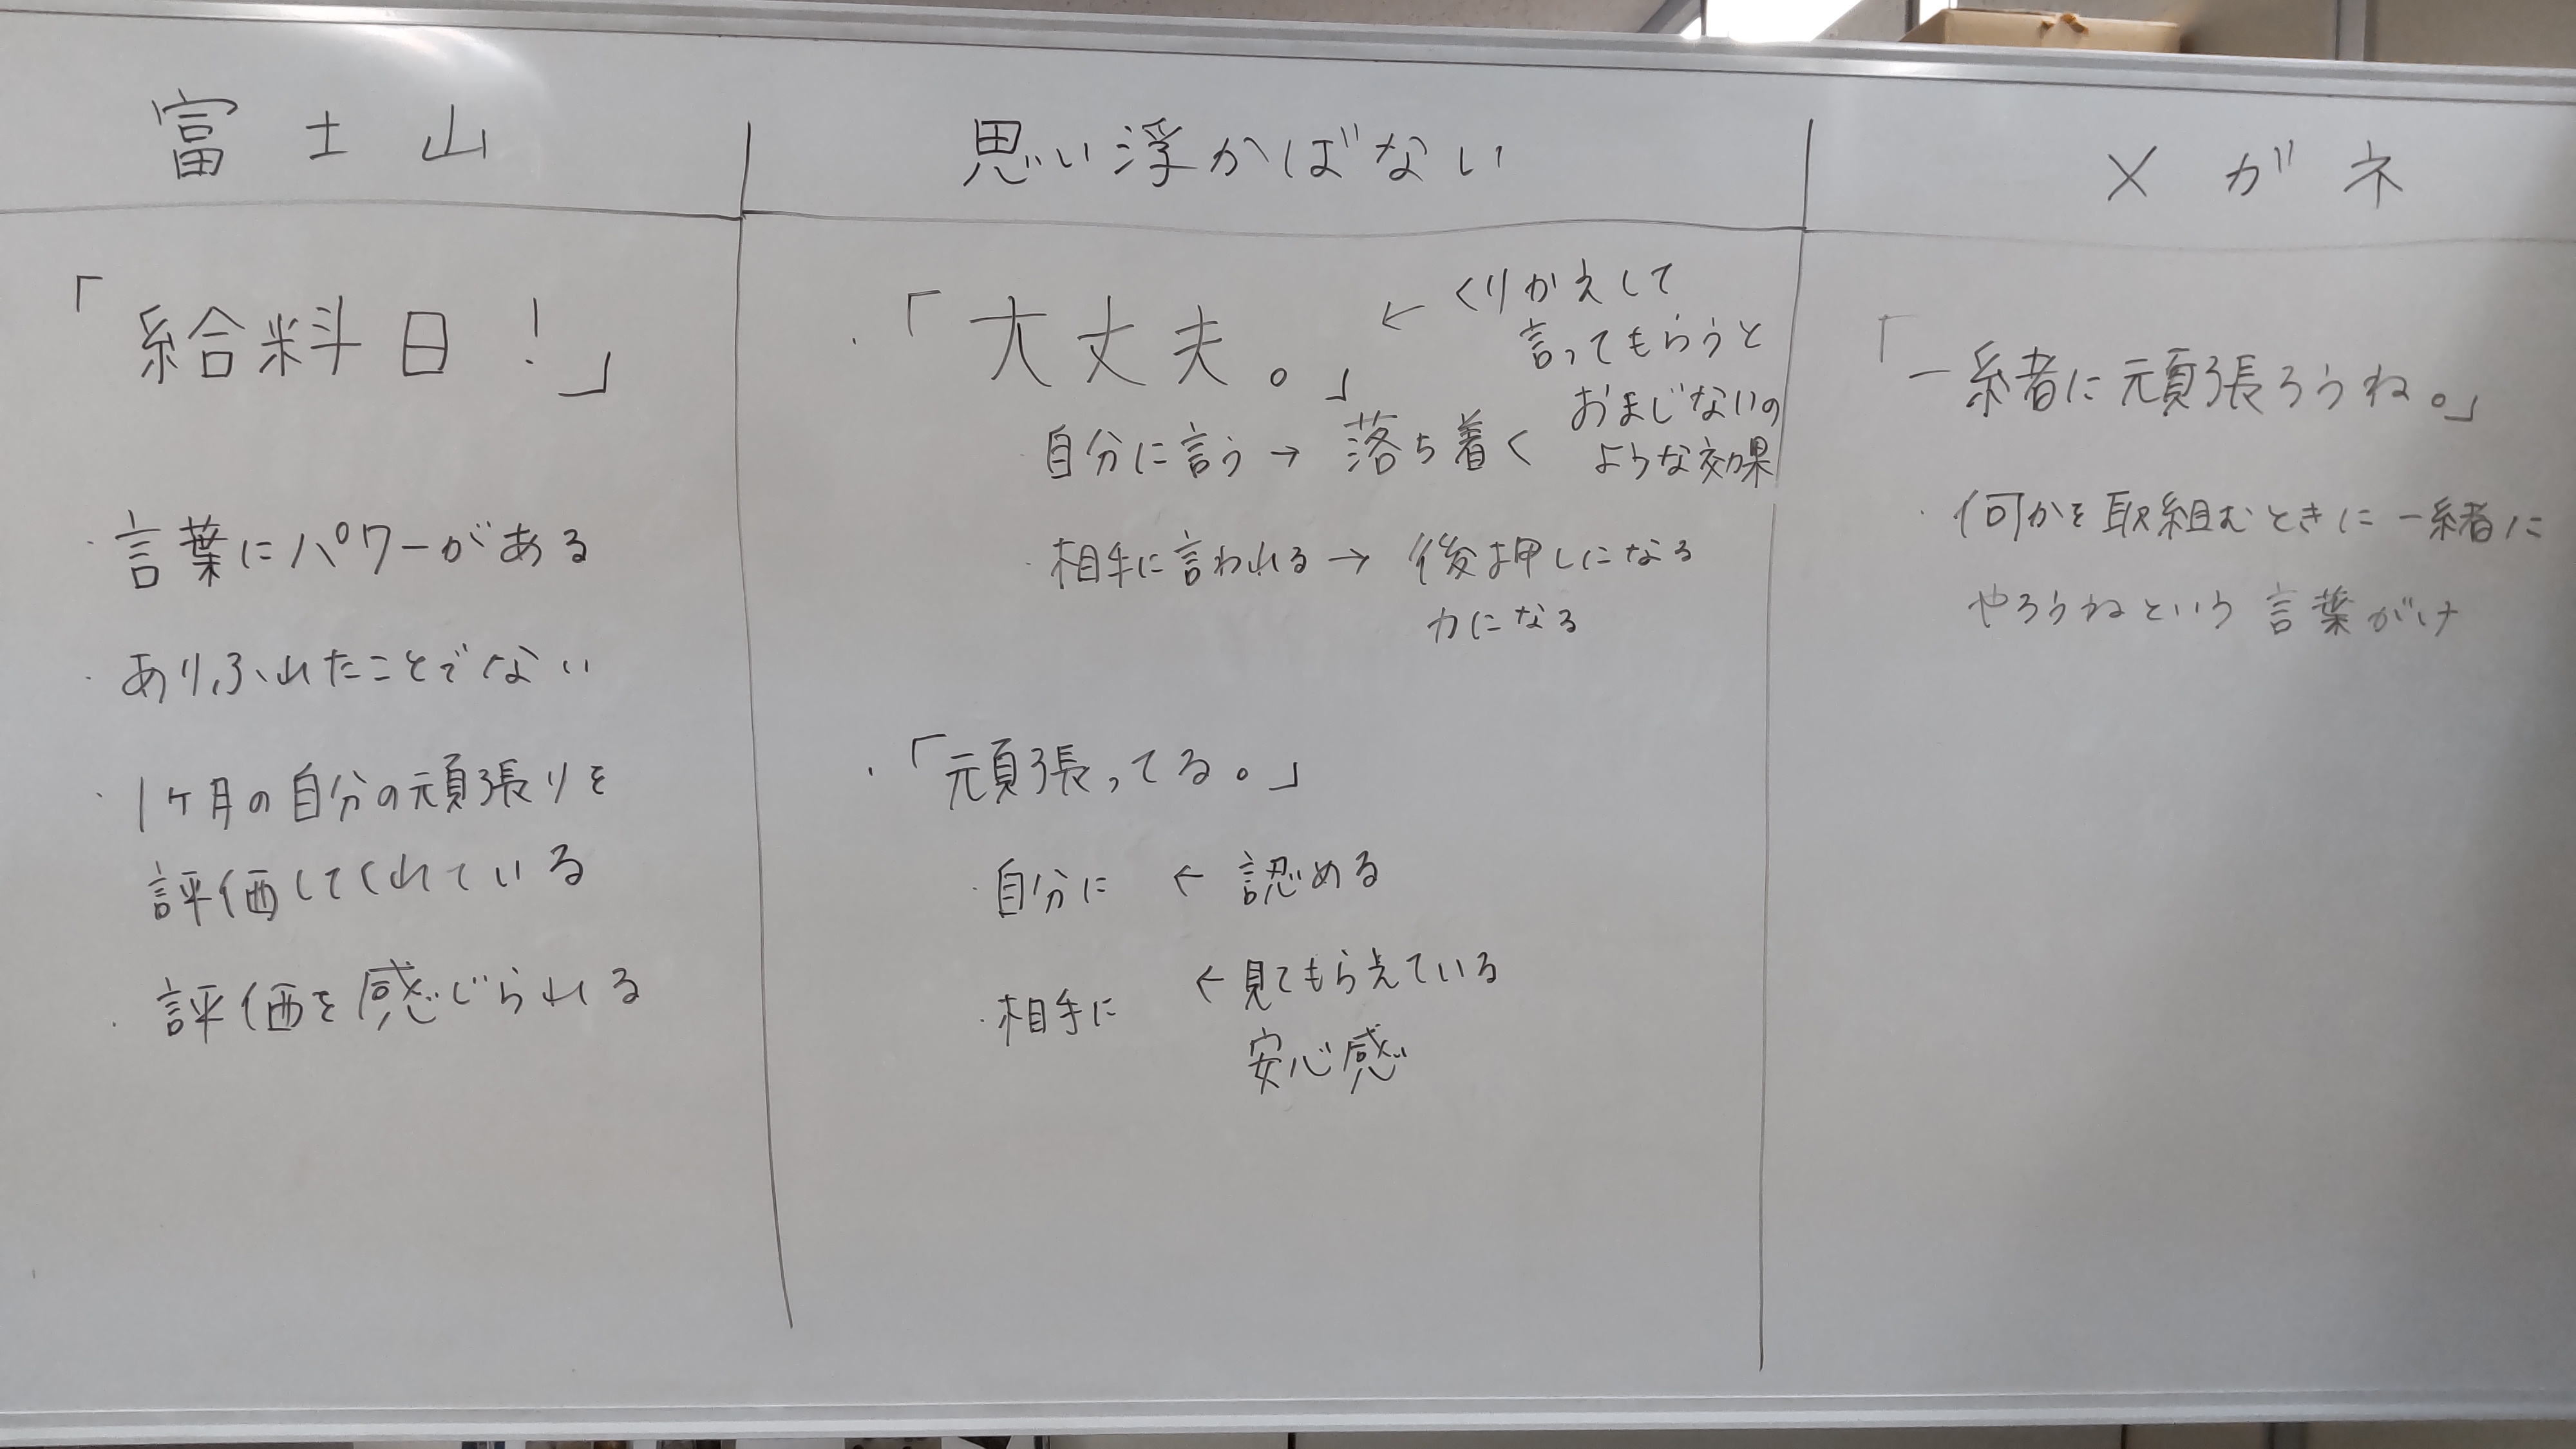 富士山
「給料日！」
・言葉にパワーがある
・ありふれたことでない
・1ヶ月の自分の頑張りを
評価してくれている
・評価を感じられる
思い浮かばない
・「大丈夫。」
← くりかえして
言ってもらうと
おまじないの
ような効果
・自分に言う → 落ち着く
・相手に言われる → 後押しになる
力になる
・「頑張ってる。」
・自分に ← 認める
・相手に ← 見てもらえている
安心感
メガネ
「一緒に頑張ろうね。」
・何かを取組むときに一緒に
やろうねという言葉がけ